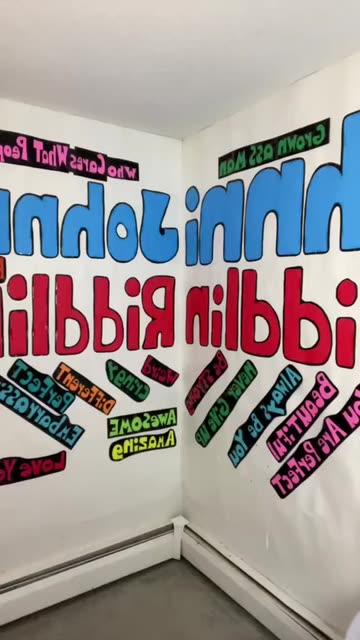 Grown ass Man
hnni
iddlin
You Are Perfect
Beautiful
Always Be You
Never Give Up
Be Strong
Who Cares What Peop
Johnn
Riddli
Weird
Cringy
Different
Perfect
Embarrass
Awesome
Amazing
Love Yo